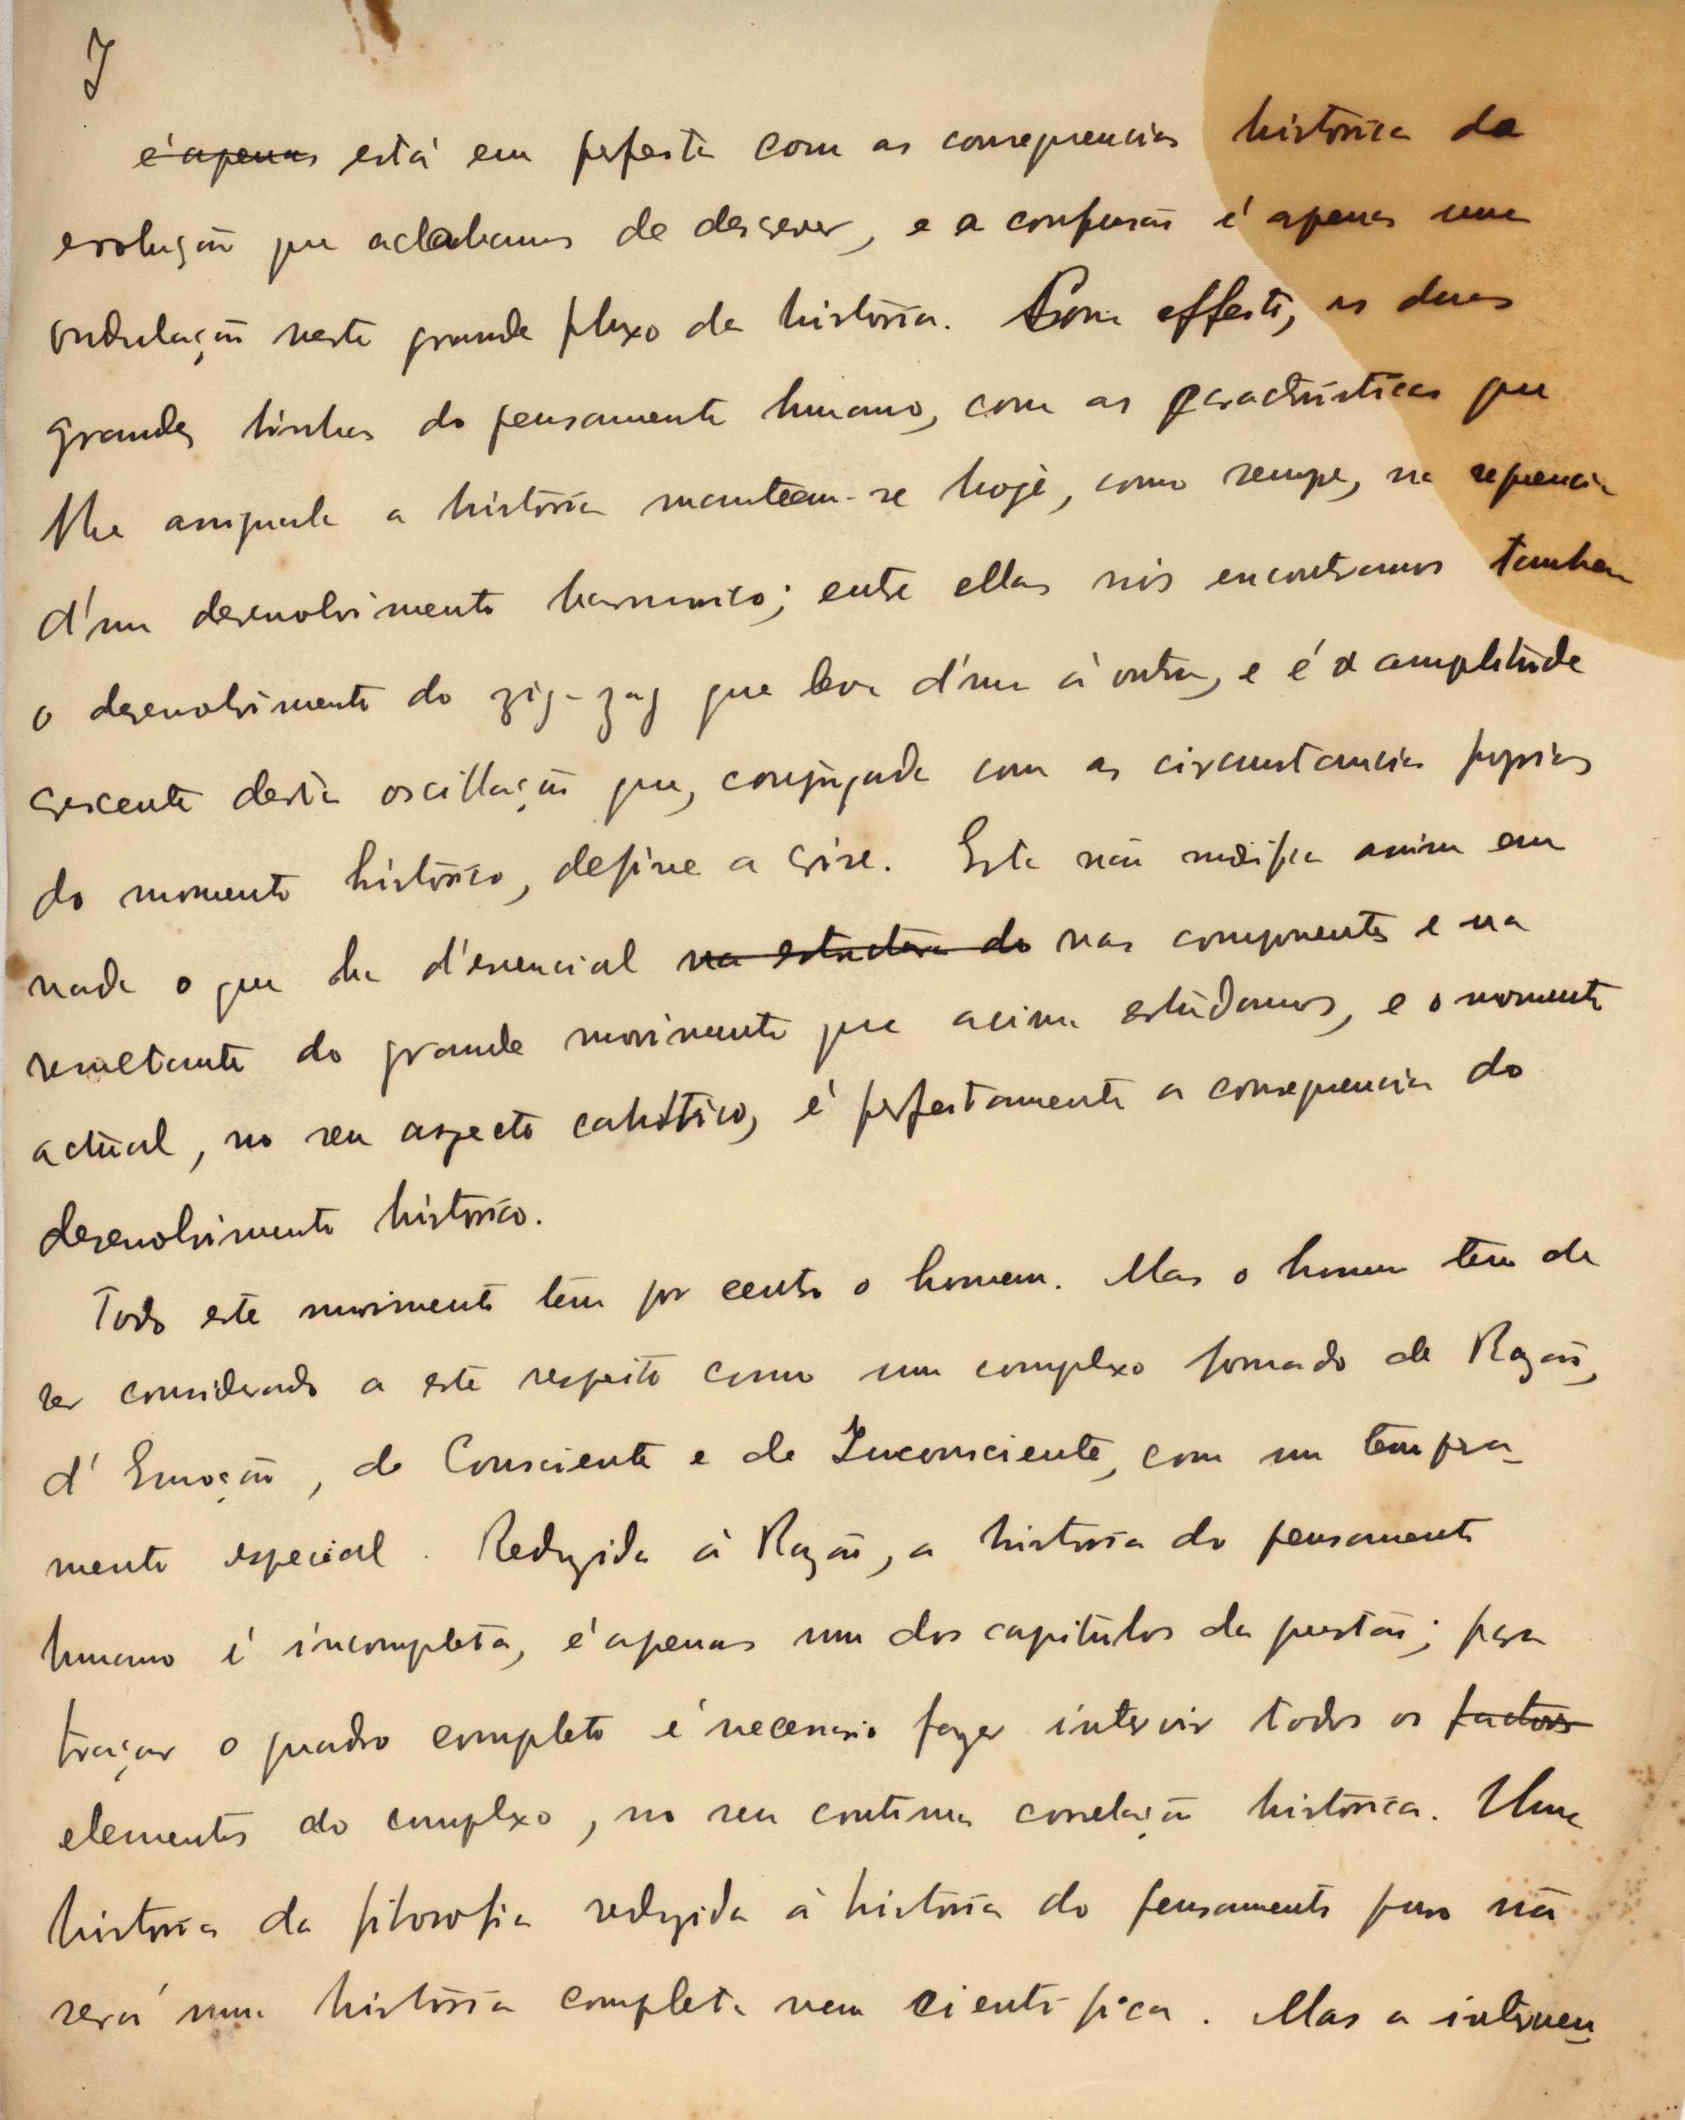 7
é apenas está em perfeita com as consequencias historica da
evolução que acabamos de descrever, e a confusão é apenas uma
ondulação neste grande fluxo da história. Com effeito, as duas
grandes linhas do pensamento humano, com as características que
lhe assignala a história manteem-se hoje, como sempre, na sequencia
d'um desenvolvimento harmonico; entre ellas nós encontramos tambem
o desenvolvimento do zig-zag que leva d'uma á outra, e é a amplitude
crescente desta oscillação que, conjugada com as circumstancias proprias
do momento histórico, define a crise. Esta não modifica assim em
nada o que ha d'essencial na estructura do nas componentes e na
resultante do grande movimento que acima estudamos, e o momento
actual, no seu aspecto cahótico, é perfeitamente a consequencia do
desenvolvimento histórico.
Todo este movimento tem por centro o homem. Mas o homem tem de
ser considerado a este respeito como um complexo formado de Razão,
d'Emoção, de Consciente e de Inconsciente, com um tempera-
mento especial. Reduzida á Razão, a historia do pensamento
humano é incompleta, é apenas um dos capitulos da questão; para
traçar o quadro completo é necessario fazer intervir todos os factores
elementos do complexo, no seu continua correlação histórica. Uma
historia da filosofia reduzida á história do pensamento puro não
será uma história completa nem cientifica. Mas a interven